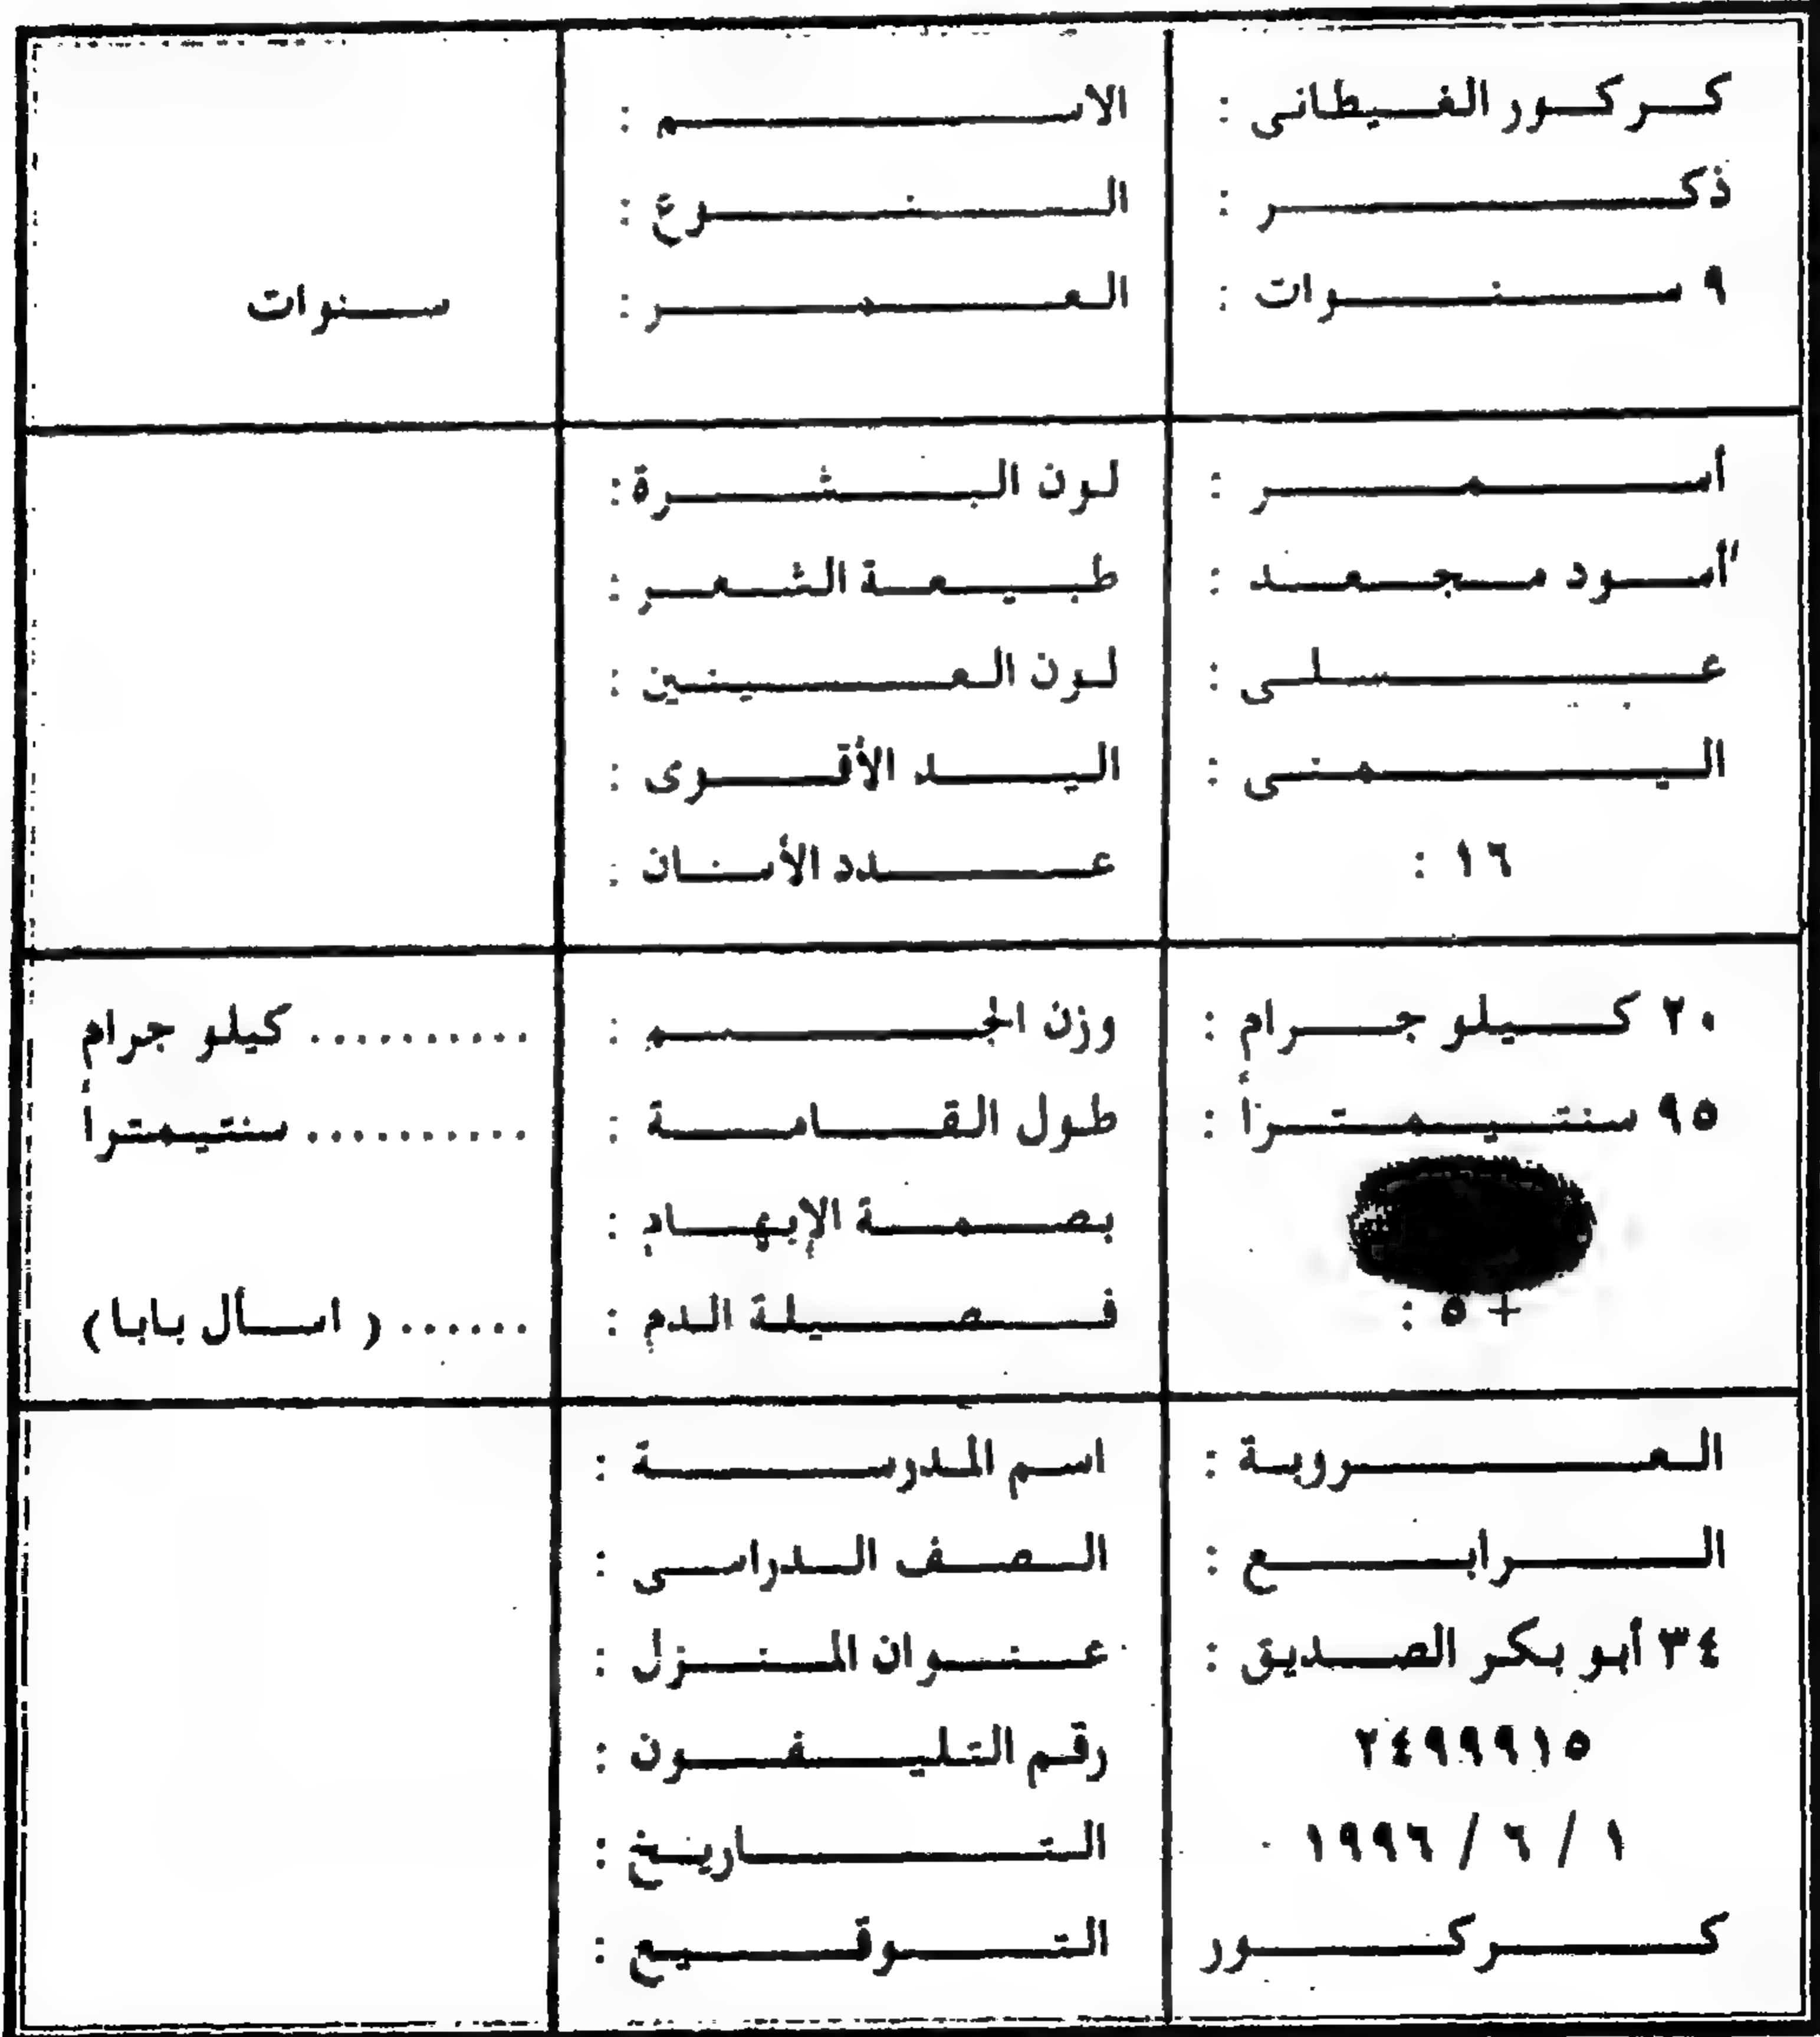 كركور الغيطانى : الاسم :
ذكر : النوع :
٩ سنوات : العمر : سنوات
أسمر : لون البشرة :
أسود مجعد : طبيعة الشعر :
عسلى : لون العينين :
اليمنى : اليد الأقوى :
١٦ : عدد الأسنان :
٢٠ كيلو جرام : وزن الجسم : .......... كيلو جرام
٩٥ سنتيمتراً : طول القامة : .......... سنتيمتراً
بصمة الإبهام :
+ ٥ : فصيلة الدم : ...... (اسأل بابا)
العروبة : اسم المدرسة :
الرابع : الصف الدراسى :
٣٤ أبو بكر الصديق : عنوان المنزل :
٢٤٩٩٩١٥ رقم التليفون :
١ / ٦ / ١٩٩٦ التاريخ :
كركور التوقيع :